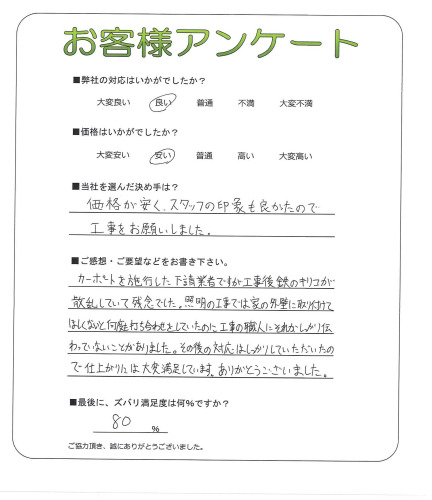 お客様アンケート
■弊社の対応はいかがでしたか？
大変良い 良い 普通 不満 大変不満
■価格はいかがでしたか？
大変安い 安い 普通 高い 大変高い
■当社を選んだ決め手は？
価格が安く、スタッフの印象も良かたので
工事をお願いしました。
■ご感想・ご要望などをお書き下さい。
カーポートを施行した下請業者ですが工事後鉄のキリコが
散乱していて残念でした。照明の工事では家の外壁に取り付けて
ほしくないと何度打ち合わせをしていたのに工事の職人にそれがしっかり伝
わっていないことがありました。その後の対応はしっかりしていただいたの
で仕上がりには大変満足しています。ありがとうございました。
■最後に、ズバリ満足度は何%ですか？
80 %
ご協力頂き、誠にありがとうございました。